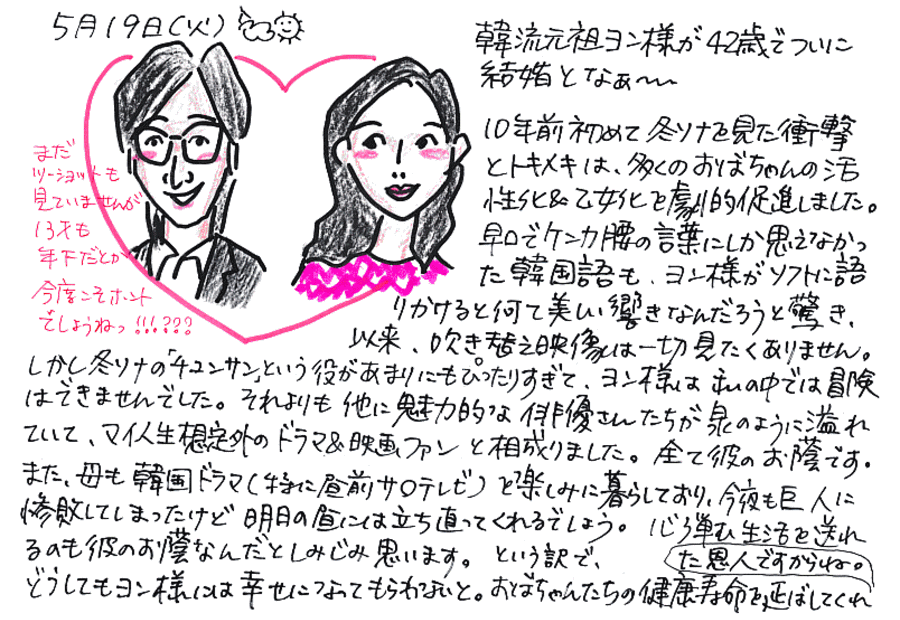 5月19日(火)
韓流元祖ヨン様が42歳でついに
結婚となぁ〜
まだ
ツーショットも
見ていませんが
13才も
年下だとか
今度こそホント
でしょうねっ!!!???
10年前初めて冬ソナを見た衝撃
とトキメキは、多くのおばちゃんの活
性化&乙女化を劇的促進しました。
早口でケンカ腰の言葉にしか思えなかっ
た韓国語も、ヨン様がソフトに語
りかけると何て美しい響きなんだろうと驚き、
以来、吹き替え映像は一切見たくありません。
しかし冬ソナの「チュンサン」という役があまりにもぴったりすぎて、ヨン様は私の中では冒険
はできませんでした。それよりも他に魅力的な俳優さんたちが泉のように溢れ
ていて、マイ人生想定外のドラマ&映画ファンと相成りました。全て彼のお蔭です。
また、母も韓国ドラマ(特に昼前サロテレビ)と楽しみに暮らしており、今夜も巨人に
惨敗してしまったけど明日の昼には立ち直ってくれるでしょう。心弾む生活を送れ
るのも彼のお蔭なんだとしみじみ思います。という訳で、
どうしてもヨン様には幸せになってもらわないと。おばちゃんたちの健康寿命を延ばしてくれ
た恩人ですからね。